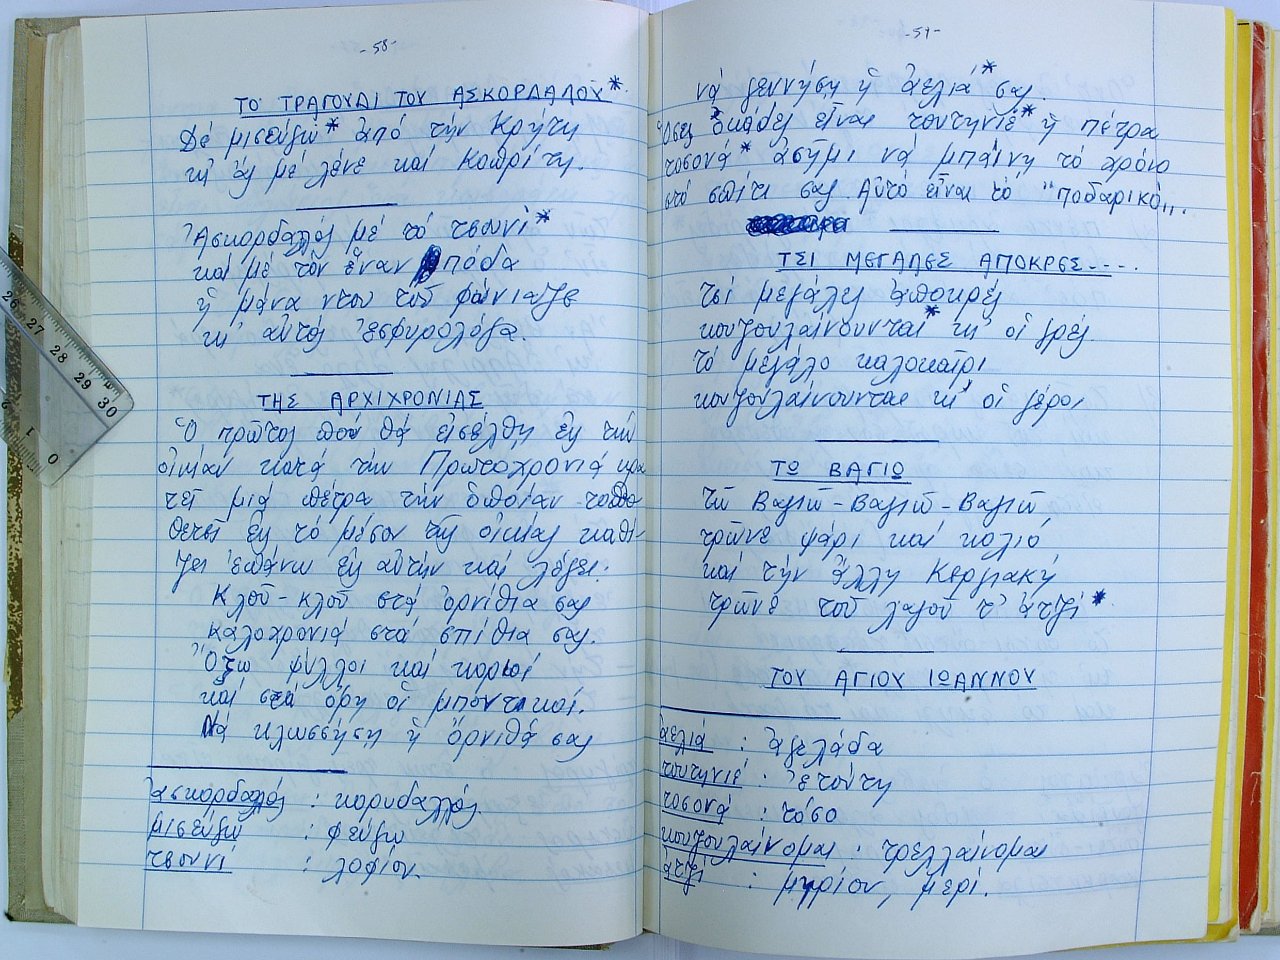 -58-
ΤΟ ΤΡΑΓΟΥΔΙ ΤΟΥ ΑΣΚΟΡΔΑΛΟΥ*
Δέ μισεύγω* ἀπό τήν Κρήτη
κι' ἄς μέ λένε καί Κοπρίτη.
Ἀσκορδαλός μέ τό τσουνί*
καί μέ τόν ἕναν πόδα
ἡ μάνα ντου τοῦ φώνιαζε
κι' αὐτός ἐσφυρολόγα.
ΤΗΣ ΑΡΧΙΧΡΟΝΙΑΣ
Ὁ πρῶτος πού θά εἰσέλθη εἰς τήν
οἰκίαν κατά τήν Πρωτοχρονιά κρα
τεῖ μιά πέτρα τήν ὁποίαν τοπο
θετεῖ εἰς τό μέσον τῆς οἰκίας καθί-
ζει ἐπάνω εἰς αὐτήν καί λέγει:
Κλοῦ-κλοῦ στά ὀρνίθια σας
καλοχρονιά στά σπίθια σας.
Ὄξω ψύλλοι καί κοριοί
καί στά ὄρη οἱ μπόντικοί.
Νά κλωσσήση ἡ ὄρνιθά σας
ἀσκορδαλός : κορυδαλλός.
μισεύγω : φεύγω
τσουνί : λοφίον.
-59-
νά γεννήση ἡ ἀελιά* σας
Ὅσες ὀκάδες εἶναι τουτηνιέ* ἡ πέτρα
τοσονά* ἀσήμι νά μπαίνη τό χρόνο
στό σπίτι σας. Αὐτό εἶναι τό "ποδαρικό".
ΤΣΙ ΜΕΓΑΛΕΣ ΑΠΟΚΡΕΣ....
τσί μεγάλες ἀποκρές
κουζουλαίνουνται* κι' οἱ γρές
τό μεγάλο καλοκαῖρι
κουζουλαίνουνται κι' οἱ γέροι
ΤΩ ΒΑΓΙΩ
τῶ Βαγιῶ-Βαγιῶ-Βαγιῶ
τρῶνε ψάρι καί κολιό
καί τήν ἄλλη Κεργιακή
τρῶνε τοῦ λαγοῦ τ' ἀτζί*
ΤΟΥ ΑΓΙΟΥ ΙΩΑΝΝΟΥ
ἀελιά : ἀγελάδα
τουτηνιέ : ἐτούτη
τοσονά : τόσο
κουζουλαίνομαι : τρελλαίνομαι
ἀτζί : μηρίον, μερί.